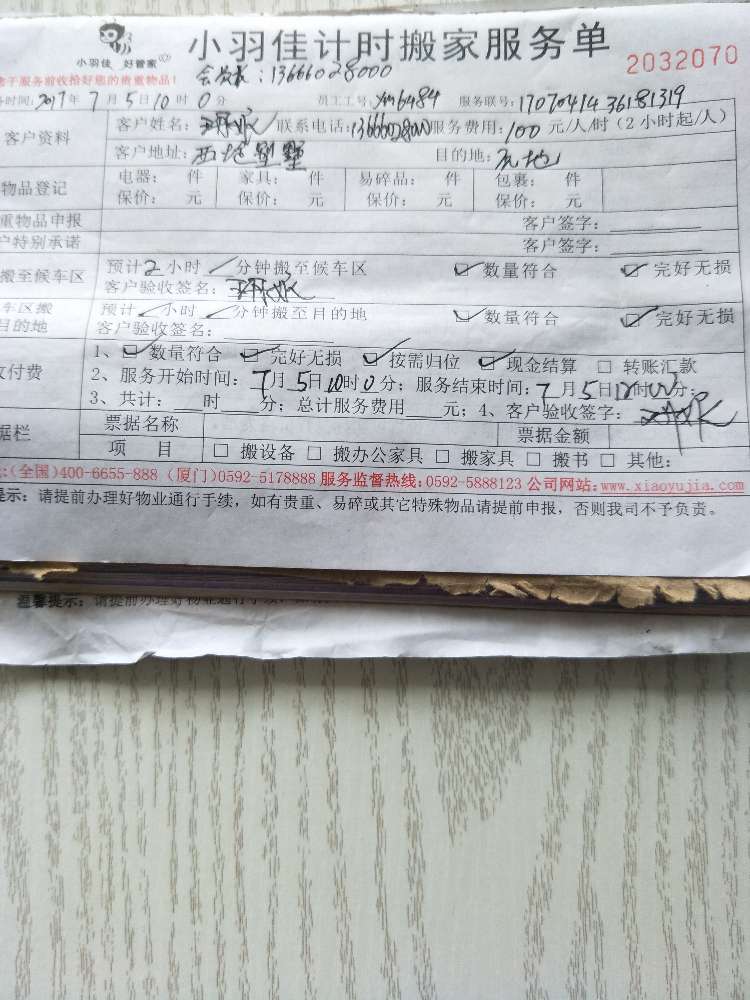 小羽佳 好管家
小羽佳计时搬家服务单
2032070
于服务前收拾好您的贵重物品！
会员卡：13666028000
时间：2017年7月5日10时0分 员工工号：xm6484 服务联号：1707041436181319
客户资料
客户姓名： 联系电话：13666028000 服务费用：100元/人/时（2小时起/人）
客户地址：西堤别墅 目的地：瓦地
物品登记
电器： 件 家具： 件 易碎品： 件 包裹： 件
保价： 元 保价： 元 保价： 元 保价： 元
重物品申报 客户签字：
户特别承诺 客户签字：
搬至候车区
预计2小时 分钟搬至候车区 ☑数量符合 ☑完好无损
客户验收签名：
车区搬
目的地
预计 小时 分钟搬至目的地 ☑数量符合 ☑完好无损
客户验收签名：
付费
1、☑数量符合 ☑完好无损 ☑按需归位 ☑现金结算 □转账汇款
2、服务开始时间：7月5日10时0分；服务结束时间：7月5日12时00分；
3、共计： 时 分；总计服务费用 元；4、客户验收签字：
据栏
票据名称 票据金额
项 目 □搬设备 □搬办公家具 □搬家具 □搬书 □其他：
：(全国)400-6655-888 (厦门)0592-5178888 服务监督热线：0592-5888123 公司网站：www.xiaoyujia.com
提示：请提前办理好物业通行手续，如有贵重、易碎或其它特殊物品请提前申报，否则我司不予负责。
温馨提示：请提前办理好物业通行手续，